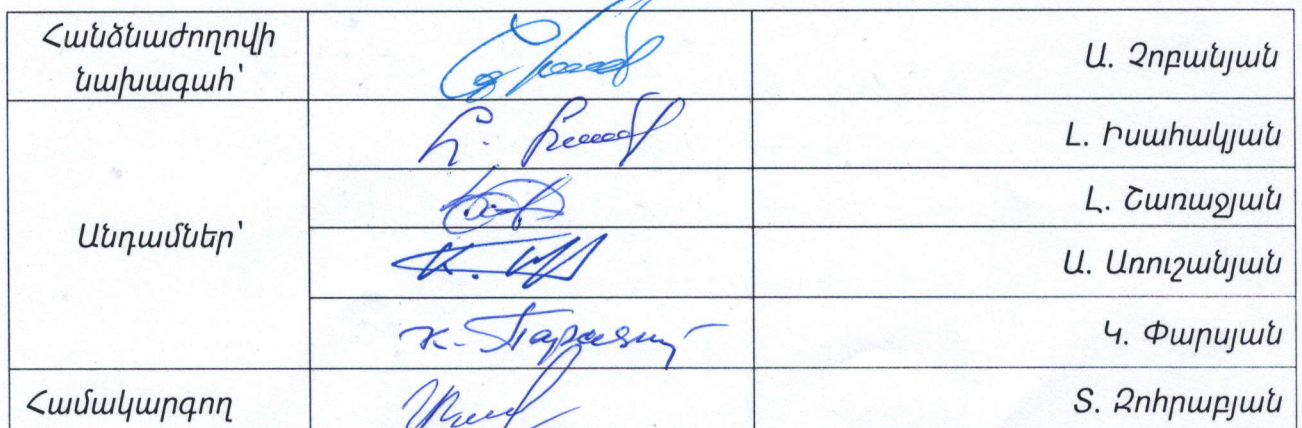 Հանձնաժողովի
նախագահ՝
Ա. Չոբանյան
Լ. Իսահակյան
Անդամներ՝
Լ. Շառաջյան
Ա. Առուշանյան
Կ. Փարսյան
Համակարգող
Տ. Զոհրաբյան